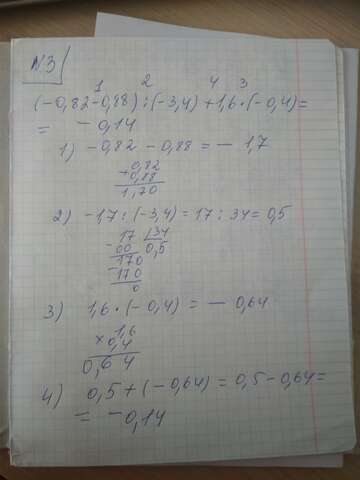 №3
1 2 4 3
(-0,82-0,88):(-3,4)+1,6·(-0,4)=
= -0,14
1) -0,82 - 0,88 = - 1,7
+0,82
0,88
1,70
2) -1,7:(-3,4)=17:34=0,5
17 34
- 00 0,5
170
- 170
0
3) 1,6·(-0,4) = - 0,64
× 1,6
0,4
0,6 4
4) 0,5+(-0,64)=0,5-0,64=
= -0,14